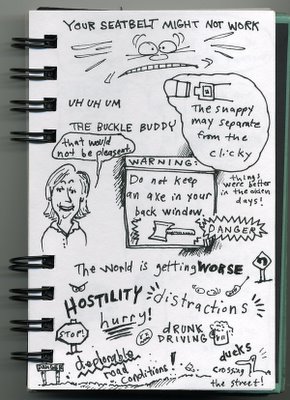 YOUR SEATBELT MIGHT NOT WORK
UH UH UM
THE BUCKLE BUDDY
The snappy
may separate
from the
clicky
that would
not be pleasant.
WARNING:
Do not keep
an axe in your
back window.
things
were better
in the olden
days!
DANGER
The world is getting WORSE
HOSTILITY
distractions
hurry!
STOP!
DRUNK
DRIVING
deplorable
road
conditions!
DANGER
ducks
crossing
the street!